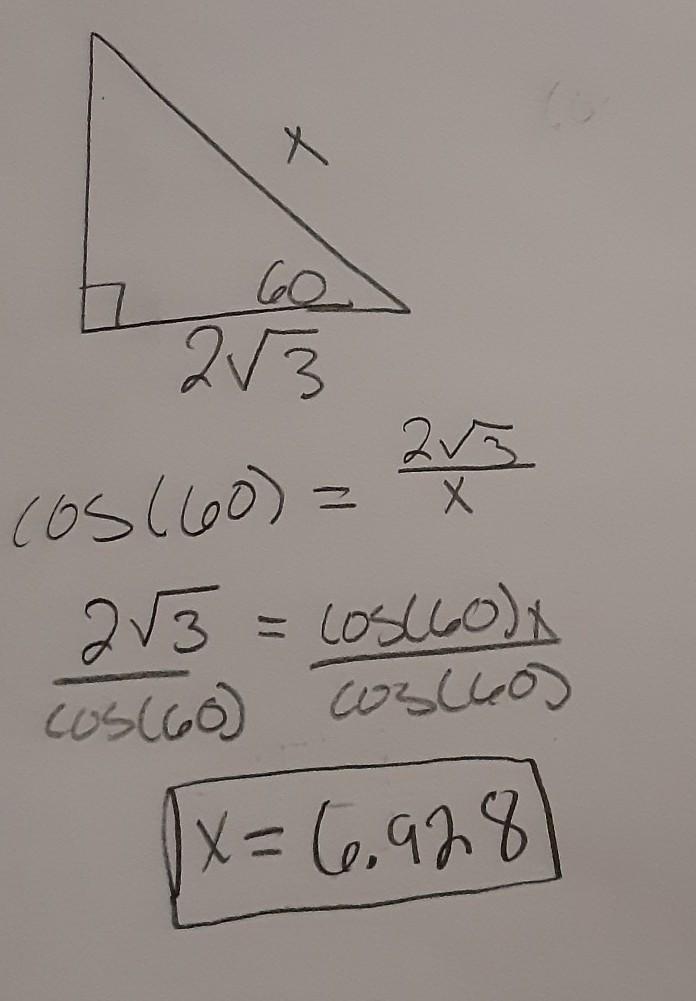 x
60
2√3
cos(60) = 2√3/x
2√3/cos(60) = cos(60)x/cos(60)
x = 6.928